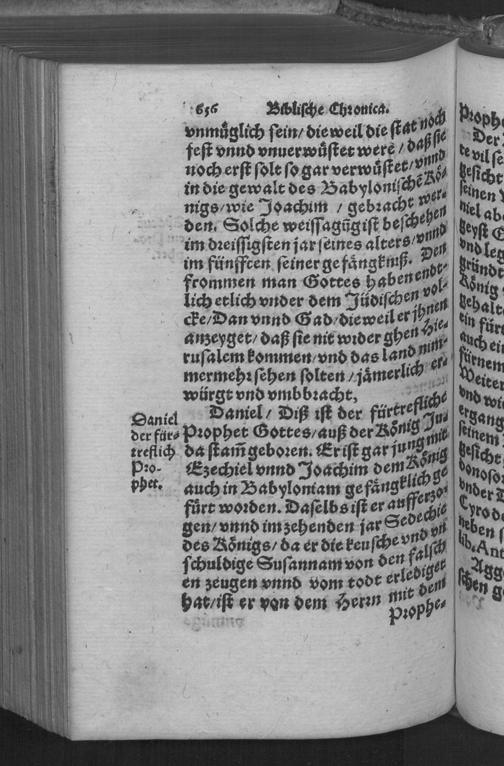 656 Biblische Chronica.
vnmüglich sein/dieweil die stat noch
fest vnnd vnuerwüstet were/daß sie
noch erst solt so gar verwüstet/vnnd
in die gewalt des Babylonischē Kö-
nigs/wie Joachim/gebracht wer-
den. Solche weissagūg ist beschehen
im dreissigsten jar seines alters/vnnd
im fünfften seiner gefängkniß. Den
frommen man Gottes haben endt-
lich etlich vnder dem Jüdischen vol-
cke/Dan vnnd Gad/dieweil er jhnen
anzeyget/daß sie nit wider ghen Hie-
rusalem kommen/vnd das land nim-
mermehr sehen solten/jämerlich er-
würgt vnd vmbbracht,
Daniel/Diß ist der fürtrefliche
Prophet Gottes/auß der König Ju-
da stam̄ geboren. Er ist gar jung mit
Ezechiel vnnd Joachim dem König
auch in Babyloniam gefängklich ge
fürt worden. Daselbs ist er aufferzo-
gen/vnnd im zehenden jar Sedechie
des Königs/da er die keusche vnd vn
schuldige Susannam von den falsch
en zeugen vnnd vom todt erlediget
hat/ist er von dem Herrn mit dem
Prophe-
Daniel
der für-
treflich
Pro-
phet.
Prophe
Der
te vil se
gesicht
seinen
niel abe
geyst
vnd leg
gründt
König
gehalte
ein für
auch ein
fürnem
Weiter
vnd wi
ergang
seinem
gesicht
donoso
vnder D
Cyro de
neben s
lib. Ant
Agge
schen ge